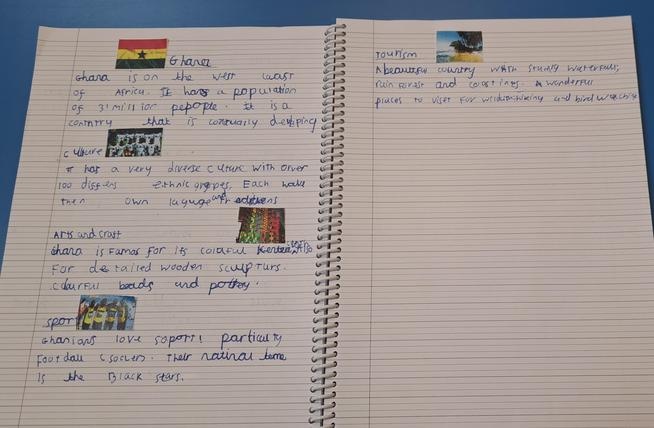 Ghana
Ghana is on the west coast
of Africa. It has a population
of 31 million pepople. It is a
conntry that is contually devlping
culture
it has a very diverse culture with over
100 differs ethnic groppes. Each with
then own layuge and tredetens
Arts and craft
Ghana is Famos for its colourful Kente cloth, Also
For detailed wooden sculpturs.
colourful beads and pottry.
sport
Ghanians love saport! particulty
Football (soccer). Their natinal teme
is the Black stars.
Tourism
A beautiful country with stunnly waterfulls,
rain forest and coastlines. A wonderful
places to viset for wilduthiking and bird waching